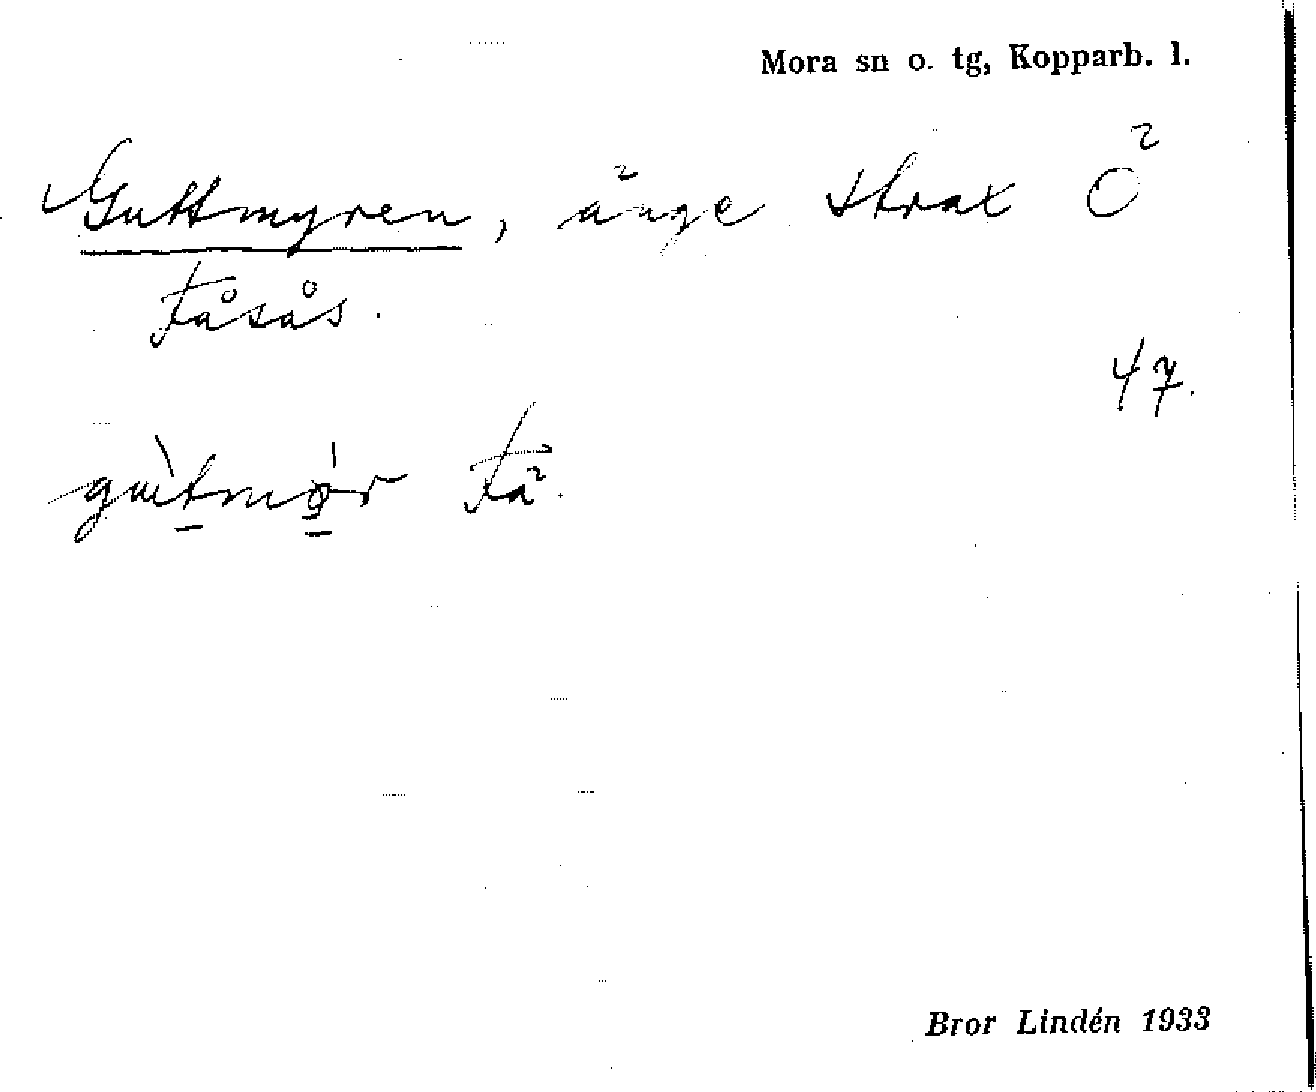 Mora sn o. tg, Kopparb. l.
Guttmyren, änge strax Ö
Fåsås.
47.
Få.
Bror Lindén 1933